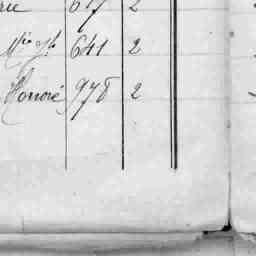 rie 617 2
Mie Jh 641 2
Honoré 978 2